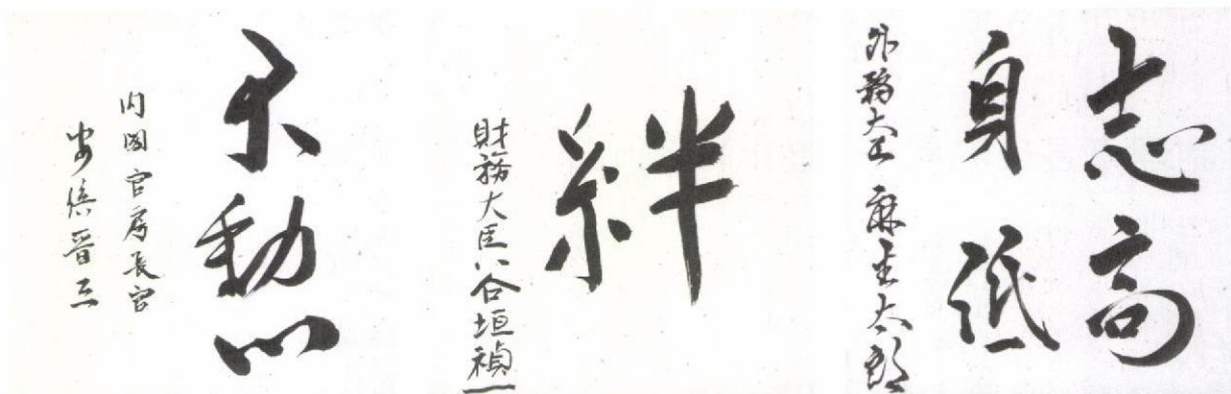 志高
身低
外務大臣 麻生太郎
絆
財務大臣 谷垣禎一
不動心
内閣官房長官
安倍晋三